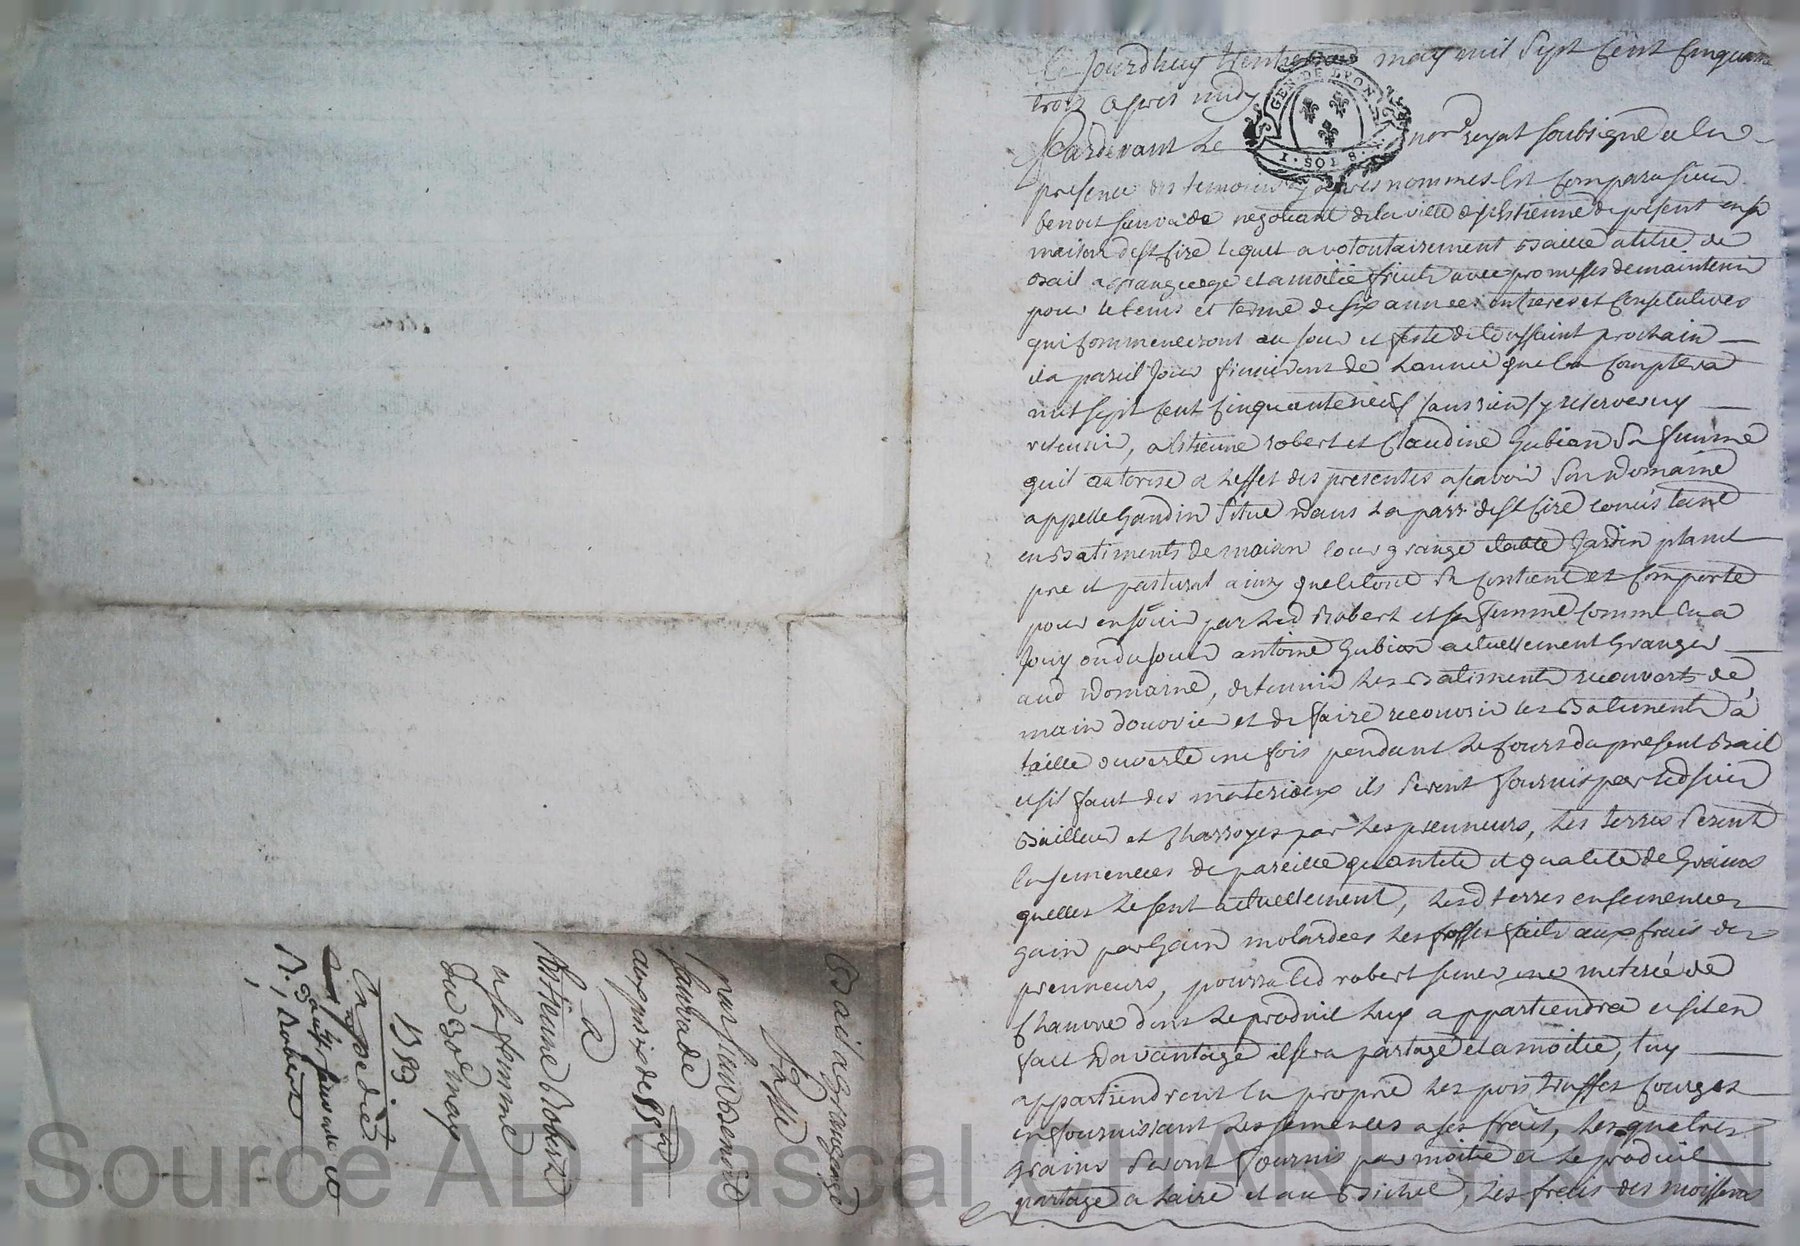 Ce Jourdhuy trentieme may mil sept Cent Cinquante
trois apres midy
GEN DE LYON
1 SOL 8
Pardevant Le nore royal soubsigné a la
presence des temoins cy apres nommes Est Comparu sieur
benoit sauvade negotiant de la ville de st Estienne de present en sa
maison de st cire lequel a volontairement Baillé a titre de
Bail a Grangeage et a moitié fruits avec promesses de maintenir
pour le tems et terme de six années entieres et Consecutives
qui Commenceront au Jour et feste de la toussaint prochain
et a pareil Jour finiront de Lannée que lon Comptera
mil sept Cent Cinquante neuf sans rien sy reserver ny
retenir, a Estienne robert et Claudine Gubian Sa femme
quil autorise a Leffet des presentes ascavoir Son Domaine
appellé Gandin Situé dans La parr. de St Cire consistant
en Batiments de maison Cour grange etable Jardin
pré et pasturat ainsy que le tout Se Contient et Comporte
pour en Jouir par Led Robert et sa femme Comme en a
Jouy ou du Jouir antoine Gubian actuellement Granger
aud Domaine, de tenir Les Batiments recouverts de
main douvrie et de faire recouvrir les Batiments a
taille ouverte une fois pendant Le Cours du present Bail
et sil faut des materiaux ils Seront fournis par led sieur
Bailleur et Charroyes par Les prenneurs, Les terres Seront
Ensemencées de pareille quantité et qualité de Grains
quelles Le sont actuellement, Lesd terres ensemencées
gain par Gain molardees Les fosses faits aux frais des
prenneurs, pourra led robert semer une meterée de
Chanvre dont Le produit Luy appartiendra et sil en
fait Davantage il sera partagé a la moitié, Luy
appartiendront En propre Les pois truffes Courges
en fournissant Les semences a ses frais, Les autres
grains Seront fournis par moitié et Le produit
partagé a Laire et au Bichet, Les frais des moissons
Bail a Grangeage
Passé
par sieur Benoit
Sauvade
au prix de
A
Estienne Robert
et sa femme
Du 30e may
1753
Expedié
sauvade et
R. Robert
Source AD Pascal CHAREYRON